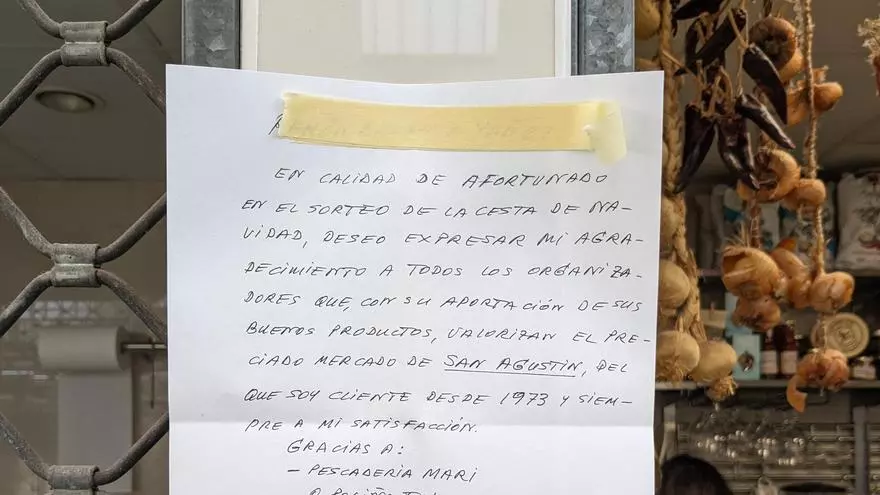 EN CALIDAD DE AFORTUNADO
EN EL SORTEO DE LA CESTA DE NA-
VIDAD, DESEO EXPRESAR MI AGRA-
DECIMIENTO A TODOS LOS ORGANIZA-
DORES QUE, CON SU APORTACIÓN DE SUS
BUENOS PRODUCTOS, VALORIZAN EL PRE-
CIADO MERCADO DE SAN AGUSTIN, DEL
QUE SOY CLIENTE DESDE 1973 Y SIEM-
PRE A MI SATISFACCIÓN.
GRACIAS A:
- PESCADERIA MARI